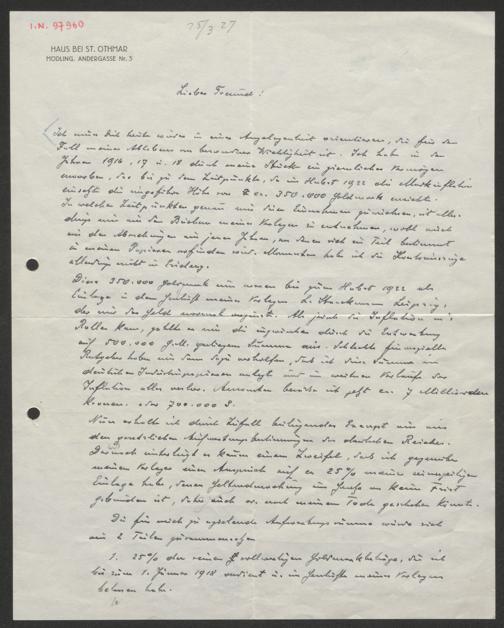 I.N. 97960
25/3 27
HAUS BEI ST. OTHMAR
MÖDLING, ANDERGASSE Nr. 3
Lieber Freund!
Ich muss Dich heute in einer Angelegenheit orientieren, die für den
Fall meines Ablebens von besonderer Wichtigkeit ist. Ich habe in den
Jahren 1916, 17 u. 18 durch meine Stücke ein ziemliches Vermögen
erworben, das bis zu dem Zeitpunkte, da im Herbst 1922 die
die ungefähre Höhe von ca. 350.000 Goldmark erreichte.
In welchen Zeitpunkten genau mir diese Einnahmen zuflossen, ist
aus den Büchern meines Verlages zu entnehmen, wohl auch
aus den Abrechnungen aus jenen Jahren, von denen sich ein Teil bestimmt
in meinen Papieren vorfinden wird. Momentan habe ich die
allerdings nicht in
Diese 350.000 Goldmark nun waren bis zum Herbst 1922 als
Einlage in dem meines Verlages L. Leipzig,
der mir das Geld normal verzinste. Als jedoch die Inflation ins
Rollen kam, zahlte er mir die inzwischen durch die Entwertung
auf 500.000 Summe aus. Schlechte finanzielle
Ratgeber haben mir dazu verholfen, dass ich diese Summe in
deutschen Industriepapieren anlegte und im weiteren Verlaufe der
Inflation alles verlor. ich jetzt ca. 7 Milliarden
Kronen oder 700.000 S.
Nun erhalte ich durch Zufall beiliegendes
den gesetzlichen Aufwertungsbestimmungen des deutschen Reiches.
Darnach unterliegt es kaum einem Zweifel, dass ich gegenüber
meinem Verlage einen Anspruch auf ca. 25% meiner seinerzeitigen
Einlage habe, deren Geltendmachung im an keine Frist
gebunden ist, daher auch nach meinem Tode geschehen könnte.
Die für mich zu Aufwertungssumme würde sich
aus 2 Teilen zusammensetzen
1. 25% der reinen vollwertigen Goldmarkbeträge, die ich
bis zum 1. Jänner 1918 verdient u. im meines Verlages
belassen habe.